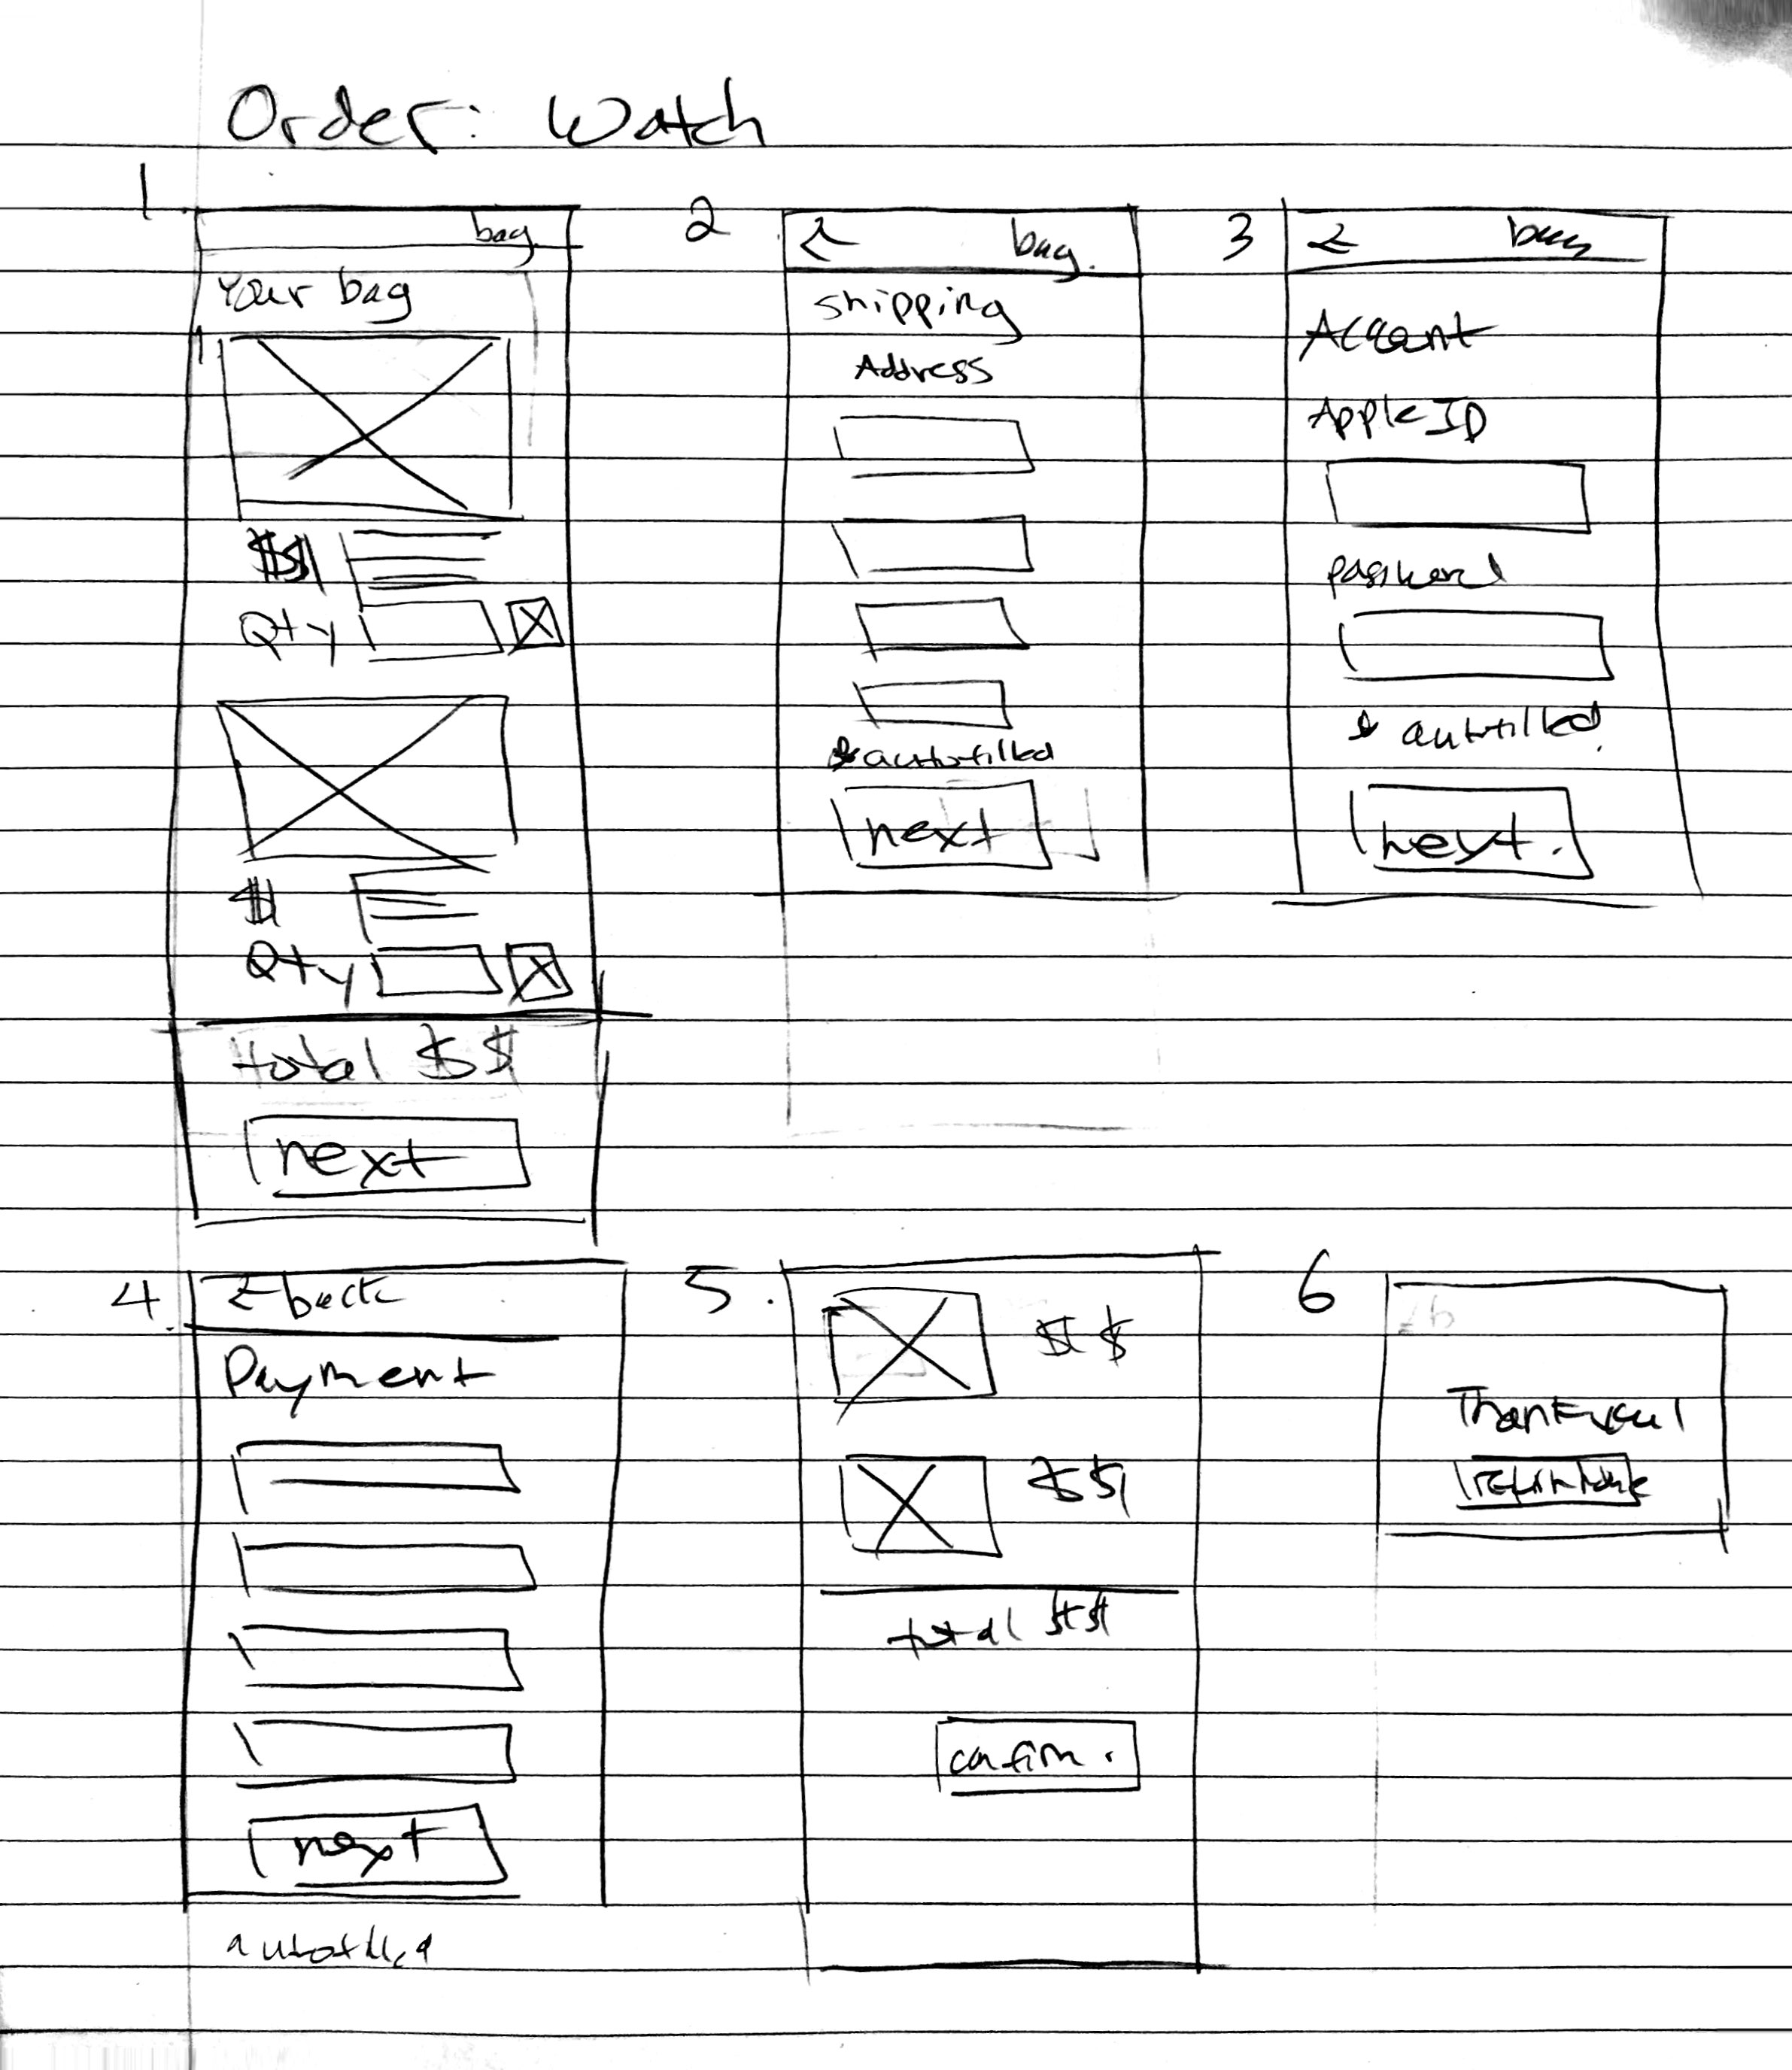 Order: Watch
1
bag
Your bag
$$
Qty
$
Qty
total $$
next
2
bag.
shipping
Address
* autofilled
next
3
bag
Account
Apple ID
password
* autofilled
next.
4.
← back
Payment
next
autofilled
5.
$ $
$$
total $$
confirm.
6
Thank you!